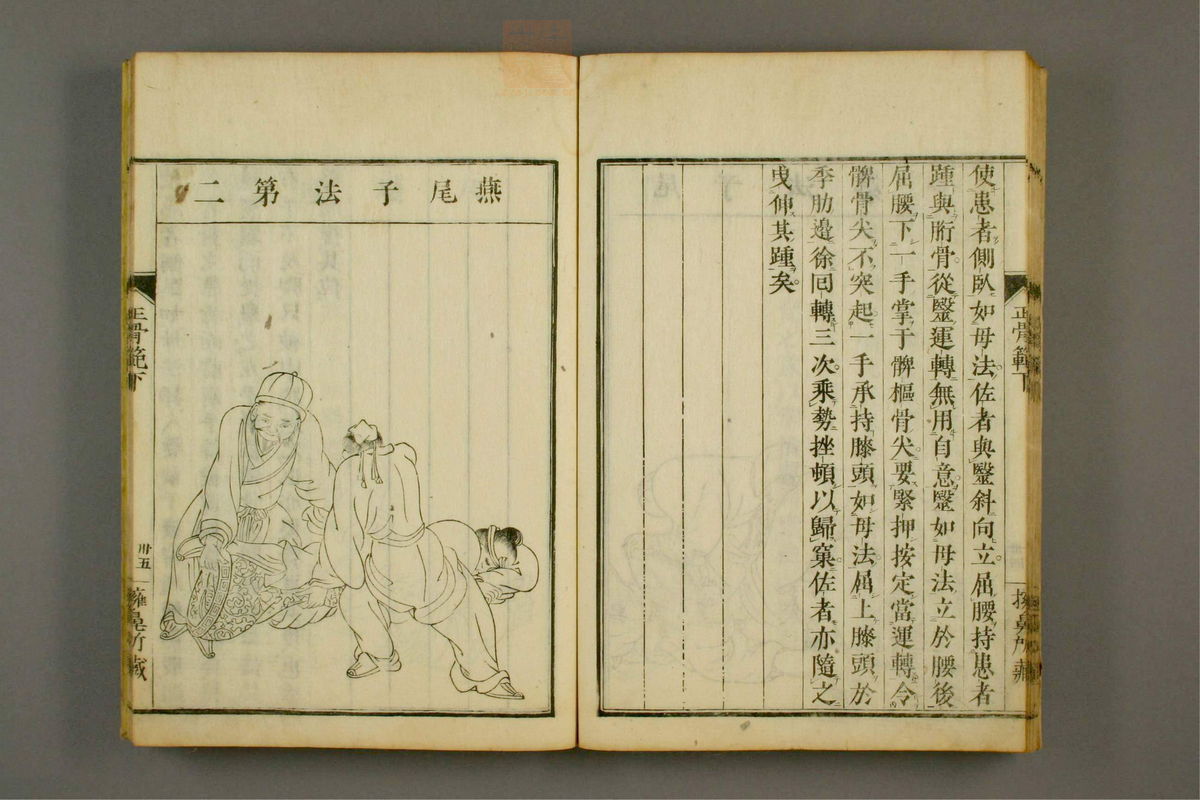 使患者側臥如母法佐者與毉斜向立屈腰持患者
踵與胻骨從毉運轉無用自意毉如母法立於腰後
屈腰下一手掌于髀樞骨尖要緊押按定當運轉令
髀骨尖不突起一手承持膝頭如母法屈上膝頭於
季肋邊徐回轉三次乘勢挫頓以歸窠佐者亦隨之
曳伸其踵矣
正骨範下
燕尾子法第二
正骨範下
卅五
擁鼻所藏